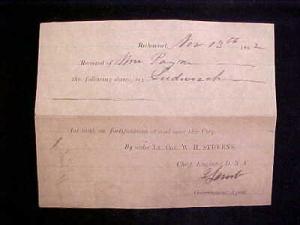 Richmond, Nov 13th 1862
Received of Wm Payne
the following slaves, viz
for work on fortifications around near this City.
By order Lt. Col. W. H. STEVENS,
Chief Engineer D. N. V.
Government Agent.